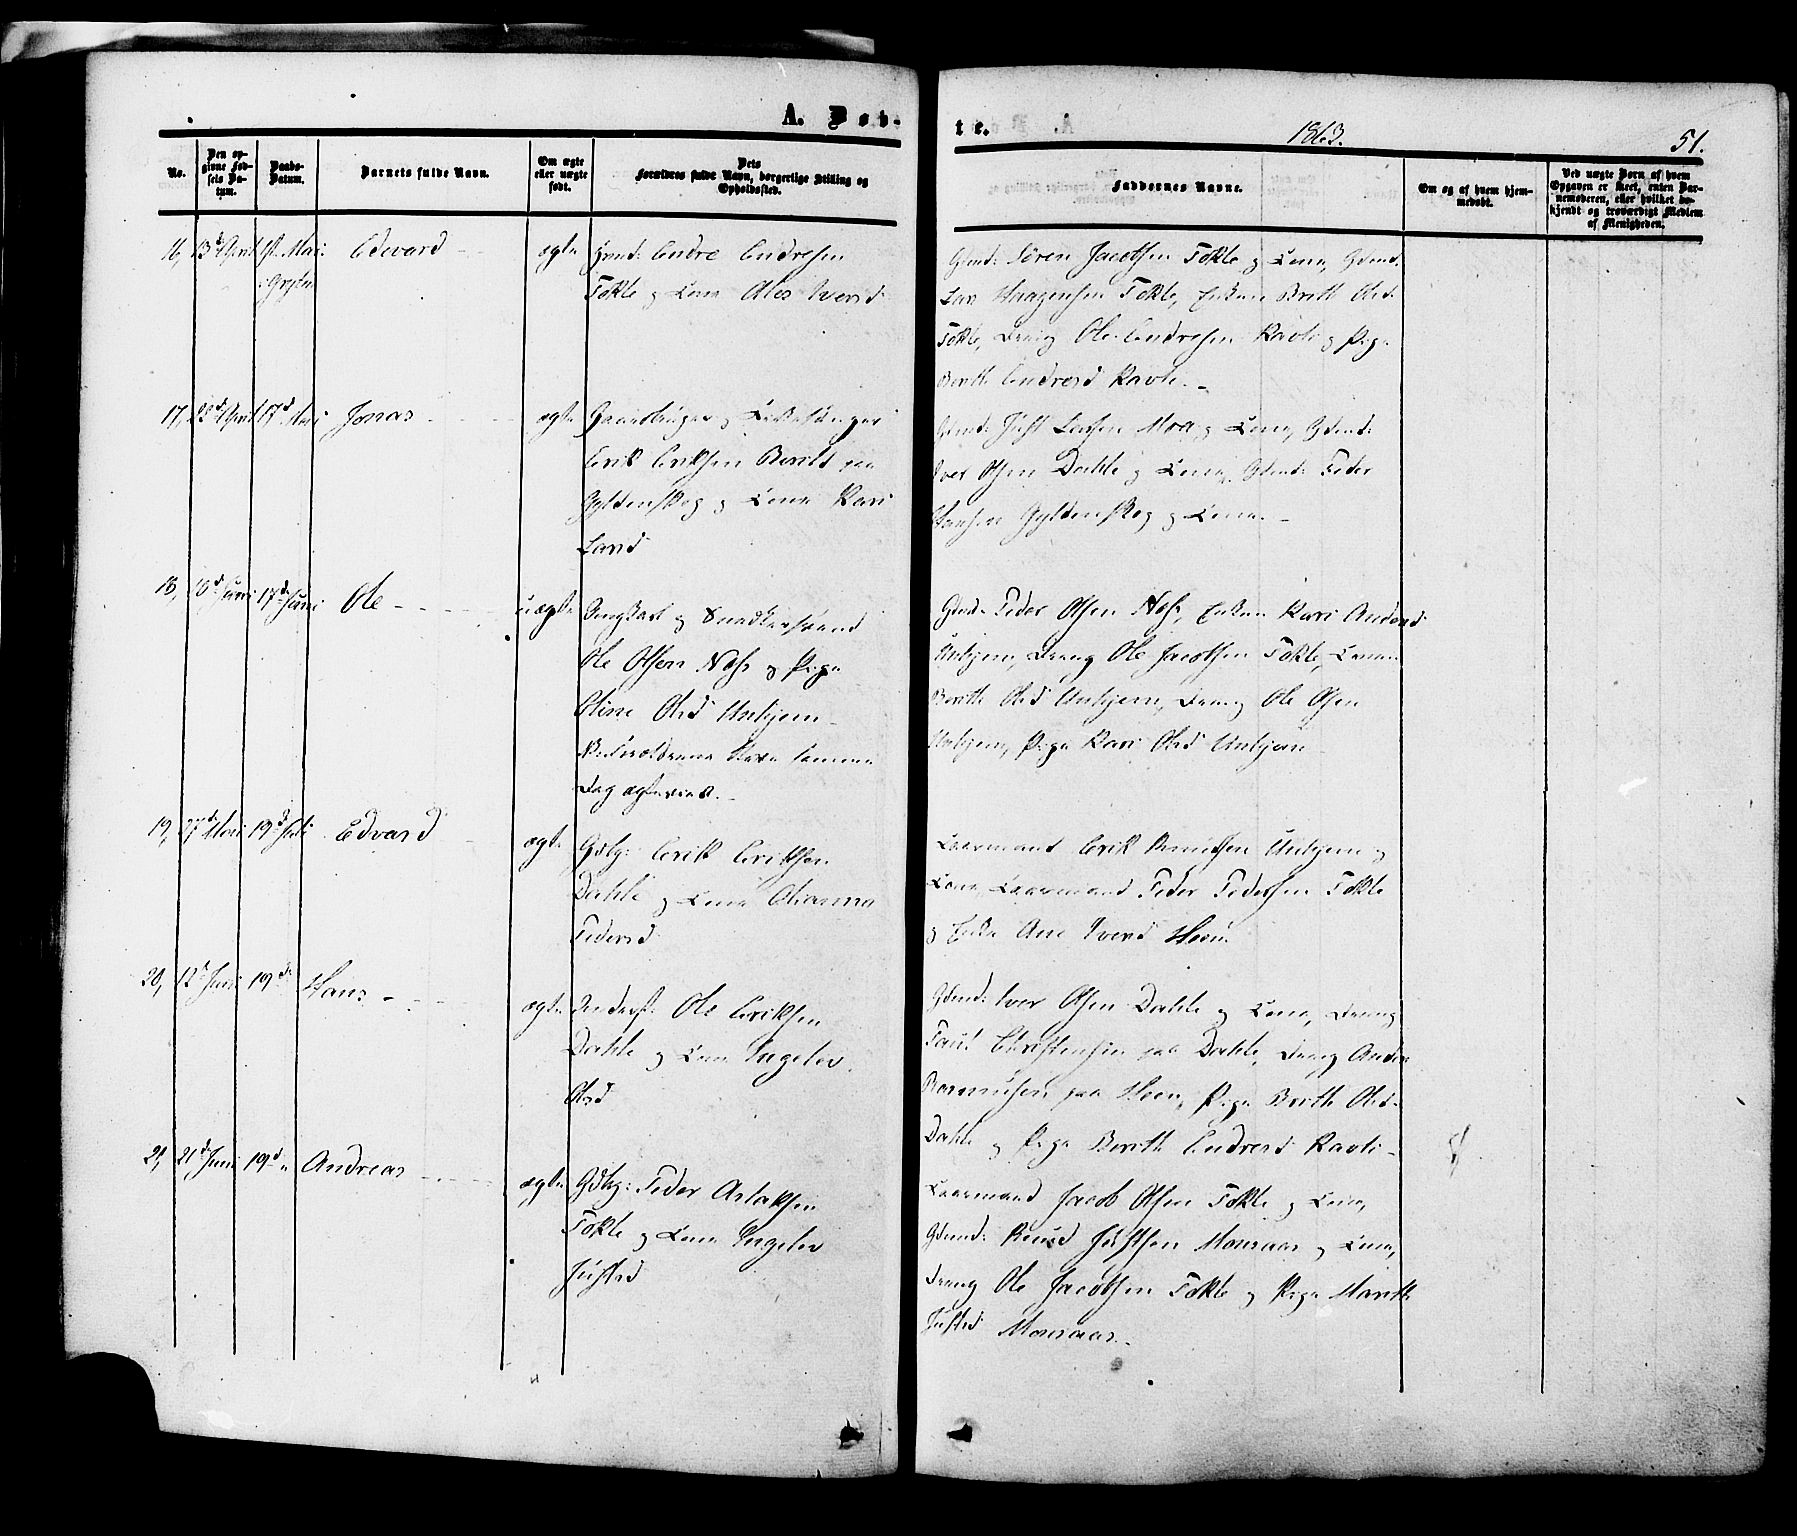 A. Døb-
te.
1863.
51.
No.
Den op-
givne Fød-
sels Da-
tum.
Daabs-
Datum.
Barnets fulde Navn.
Om ægte
eller uægte
født.
Dets
Forældres fulde Navn, borgerlige Stilling og
Opholdssted.
Faddernes Navne.
Om og af hvem hjem-
medøbt.
Ved uægte Børn af hvem
Opgaven er skeet, enten Bar-
nemoderen, eller hvilket be-
kjendt og troværdigt Medlem
af Menigheden.
16, 13d April
Mai
i Grytten
Edevard
ægte
Gmd: Endre Endresen
Tokle og Kone Ales Iversd
Gdmd: Sören Jacobsen Tokle og Kone, Gdmd.
Lars Haagensen Tokle, Enken Britt Olsd.
Tokle, Dreng Ole Endresen Ravli og Pige
Berith Endresd Ravli.
17, 22d April 17d Mai
Jonas
ægte
Gaardbruger og Kirkesanger
Erik Eriksen Berild paa
Gyldenskog og Kone Kari
Larsd
Gdmd: Just Larsen Moa og Kone, Gdmd:
Iver Olsen Dahle og Kone, Gdmd: Peder
Hansen Gyldenskog og Kone.
18, 10d Juni 17d Juni
Ole
uægte
Ungkarl og Snedkersvend
Ole Olsen Næs og Pige
Oline Olsd Unhjem
Forældrene bleve samme
Dag ægteviet.
Gdmd. Peder Olsen Næs, Enken Kari Andersd
Unhjem, Dreng Ole Jacobsen Tokle, Konen
Berith Olsd Unhjem, Dreng Ole Olsen
Unhjem, Pige Kari Olsd Unhjem
19, 27d Mai 19d Juli
Edvard
ægte
Gdbg: Erik Eriksen
Dahle og Kone Olianna
Pedersd
Kaarmand Erik Knudsen Unhjem og
Kone, Kaarmand Peder Pedersen Tokle
og Enke Ane Iversd Heen
20, 12d Juni 19d "
Hans
ægte
Inderst: Ole Eriksen
Dahle og Kone Ingelev
Olsd
Gdmd: Iver Olsen Dahle og Kone, Dreng
Paul Christensen paa Dahle, Dreng Anders
Rasmusen paa Heen, Pige Berith Olsd.
Dahle og Pige Berith Endresd Ravli
21, 21d Juni 19d "
Andreas
ægte
Gdbg: Peder Aslaksen
Tokle og Kone Ingelev
Justsd
Kaarmand Jacob Olsen Tokle og Kone,
Gdmd: Knud Justsen Monsaas og Kone,
Dreng Ole Jacobsen Tokle og Pige Marith
Justsd Monsaas.